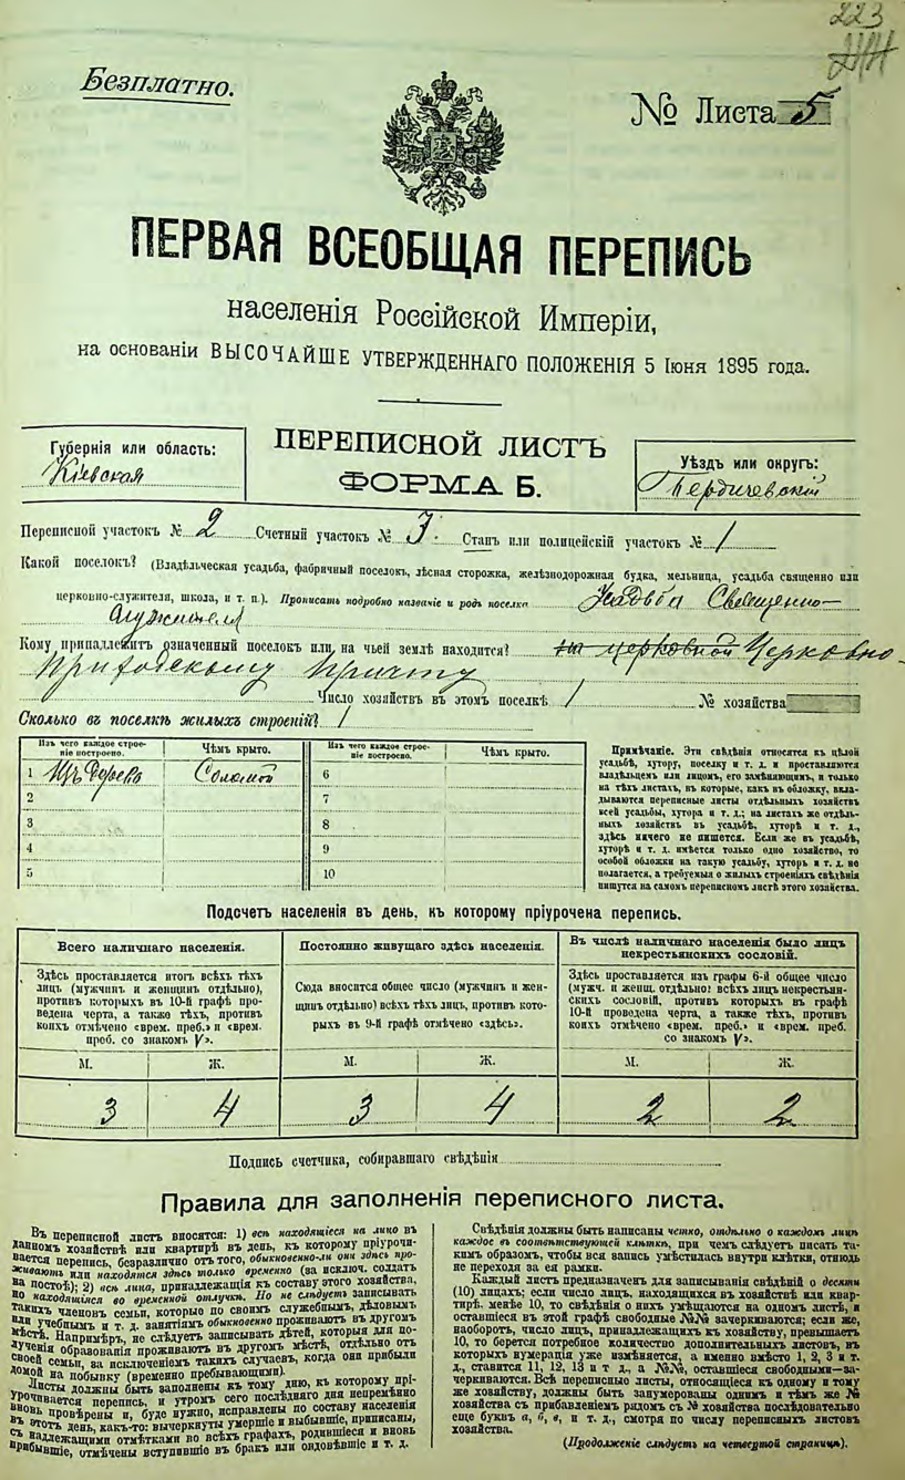 223
Безплатно.
№ Листа 5
ПЕРВАЯ ВСЕОБЩАЯ ПЕРЕПИСЬ
населенія Россійской Имперіи,
на основаніи ВЫСОЧАЙШЕ УТВЕРЖДЕННАГО ПОЛОЖЕНІЯ 5 Іюня 1895 года.
ПЕРЕПИСНОЙ ЛИСТЪ
ФОРМА Б.
Губернія или область:
Кіевская
Уѣздъ или округъ:
Бердичевскій
Переписной участокъ № 2 Счетный участокъ № 3. Станъ или полицейскій участокъ № 1
Какой поселокъ? (Владѣльческая усадьба, фабричный поселокъ, лѣсная сторожка, желѣзнодорожная будка, мельница, усадьба священно или
церковно-служителя, школа, и т. п.). Прописать подробно названіе и родъ поселка Усадьба Священно-
служителя
Кому принадлежитъ означенный поселокъ или на чьей землѣ находится? на церковной Церковно-
Приходскому Причту
Число хозяйствъ въ этомъ поселкѣ 1 № хозяйства
Сколько въ поселкѣ жилыхъ строеній? 1
Изъ чего каждое строе-
ніе построено.
Чѣмъ крыто.
Изъ чего каждое строе-
ніе построено.
Чѣмъ крыто.
1 Изъ дерева Соломой 6
2 7
3 8
4 9
5 10
Примѣчаніе. Эти свѣдѣнія относятся къ цѣлой
усадьбѣ, хутору, поселку и т. д. и проставляются
владѣльцемъ или лицомъ, его замѣняющимъ, и только
на тѣхъ листахъ, въ которые, какъ въ обложку, вкла-
дываются переписные листы отдѣльныхъ хозяйствъ
всей усадьбы, хутора и т. д.; на листахъ же отдѣль-
ныхъ хозяйствъ въ усадьбѣ, хуторѣ и т. д.,
здѣсь ничего не пишется. Если же въ усадьбѣ,
хуторѣ и т. д. имѣется только одно хозяйство, то
особой обложки на такую усадьбу, хуторъ и т. д. не
полагается, а требуемыя о жилыхъ строеніяхъ свѣдѣнія
пишутся на самомъ переписномъ листѣ этого хозяйства.
Подсчетъ населенія въ день, къ которому пріурочена перепись.
Всего наличнаго населенія.
Здѣсь проставляется итогъ всѣхъ тѣхъ
лицъ (мужчинъ и женщинъ отдѣльно),
противъ которыхъ въ 10-й графѣ про-
ведена черта, а также тѣхъ, противъ
коихъ отмѣчено «врем. преб.» и «врем.
преб. со знакомъ V».
М. Ж.
3 4
Постоянно живущаго здѣсь населенія.
Сюда вносится общее число (мужчинъ и жен-
щинъ отдѣльно) всѣхъ тѣхъ лицъ, противъ кото-
рыхъ въ 9-й графѣ отмѣчено «здѣсь».
М. Ж.
3 4
Въ числѣ наличнаго населенія было лицъ
некрестьянскихъ сословій.
Здѣсь проставляется изъ графы 6-й общее число
(мужч. и женщ. отдѣльно) всѣхъ лицъ некрестьян-
скихъ сословій, противъ которыхъ въ графѣ
10-й проведена черта, а также тѣхъ, противъ
коихъ отмѣчено «врем. преб.» и «врем. преб.
со знакомъ V».
М. Ж.
2 2
Подпись счетчика, собиравшаго свѣдѣнія
Правила для заполненія переписного листа.
Въ переписной листъ вносятся: 1) всѣ находящіеся на лицо въ
данномъ хозяйствѣ или квартирѣ въ день, къ которому пріурочи-
вается перепись, безразлично отъ того, обыкновенно-ли они здѣсь про-
живаютъ или находятся здѣсь только временно (за исключ. солдатъ
на постоѣ); 2) всѣ лица, принадлежащія къ составу этого хозяйства,
но находящіяся во временной отлучкѣ. Но не слѣдуетъ записывать
такихъ членовъ семьи, которые по своимъ служебнымъ, дѣловымъ
или учебнымъ и т. д. занятіямъ обыкновенно проживаютъ въ другомъ
мѣстѣ. Напримѣръ, не слѣдуетъ записывать дѣтей, которыя для по-
лученія образованія проживаютъ въ другомъ мѣстѣ, отдѣльно отъ
своей семьи, за исключеніемъ такихъ случаевъ, когда они прибыли
домой на побывку (временно пребывающими).
Листы должны быть заполнены къ тому дню, къ которому прі-
урочивается перепись, и утромъ сего послѣдняго дня непремѣнно
вновь провѣрены и, буде нужно, исправлены по составу населенія
въ этотъ день, какъ-то: вычеркнуты умершіе и выбывшіе, приписаны,
съ надлежащими отмѣтками во всѣхъ графахъ, родившіеся и вновь
прибывшіе, отмѣчены вступившіе въ бракъ или овдовѣвшіе и т. д.
Свѣдѣнія должны быть написаны четко, отдѣльно о каждомъ лицѣ
каждое въ соотвѣтствующей клѣткѣ, при чемъ слѣдуетъ писать та-
кимъ образомъ, чтобы вся запись умѣстилась внутри клѣтки, отнюдь
не переходя за ея рамки.
Каждый листъ предназначенъ для записыванія свѣдѣній о десяти
(10) лицахъ; если число лицъ, находящихся въ хозяйствѣ или квар-
тирѣ, менѣе 10, то свѣдѣнія о нихъ умѣщаются на одномъ листѣ, и
оставшіеся въ этой графѣ свободные №№ зачеркиваются; если же,
наоборотъ, число лицъ, принадлежащихъ къ хозяйству, превышаетъ
10, то берется потребное количество дополнительныхъ листовъ, въ
которыхъ нумерація уже измѣняется, а именно вмѣсто 1, 2, 3 и т.
д., ставится 11, 12, 13 и т д., а №№, оставшіеся свободными—за-
черкиваются. Всѣ переписные листы, относящіеся къ одному и тому
же хозяйству, должны быть занумерованы однимъ и тѣмъ же №
хозяйства съ прибавленіемъ рядомъ съ № хозяйства послѣдовательно
еще буквъ а, б, в, и т. д., смотря по числу переписныхъ листовъ
хозяйства.
(Продолженіе слѣдуетъ на четвертой страницѣ).